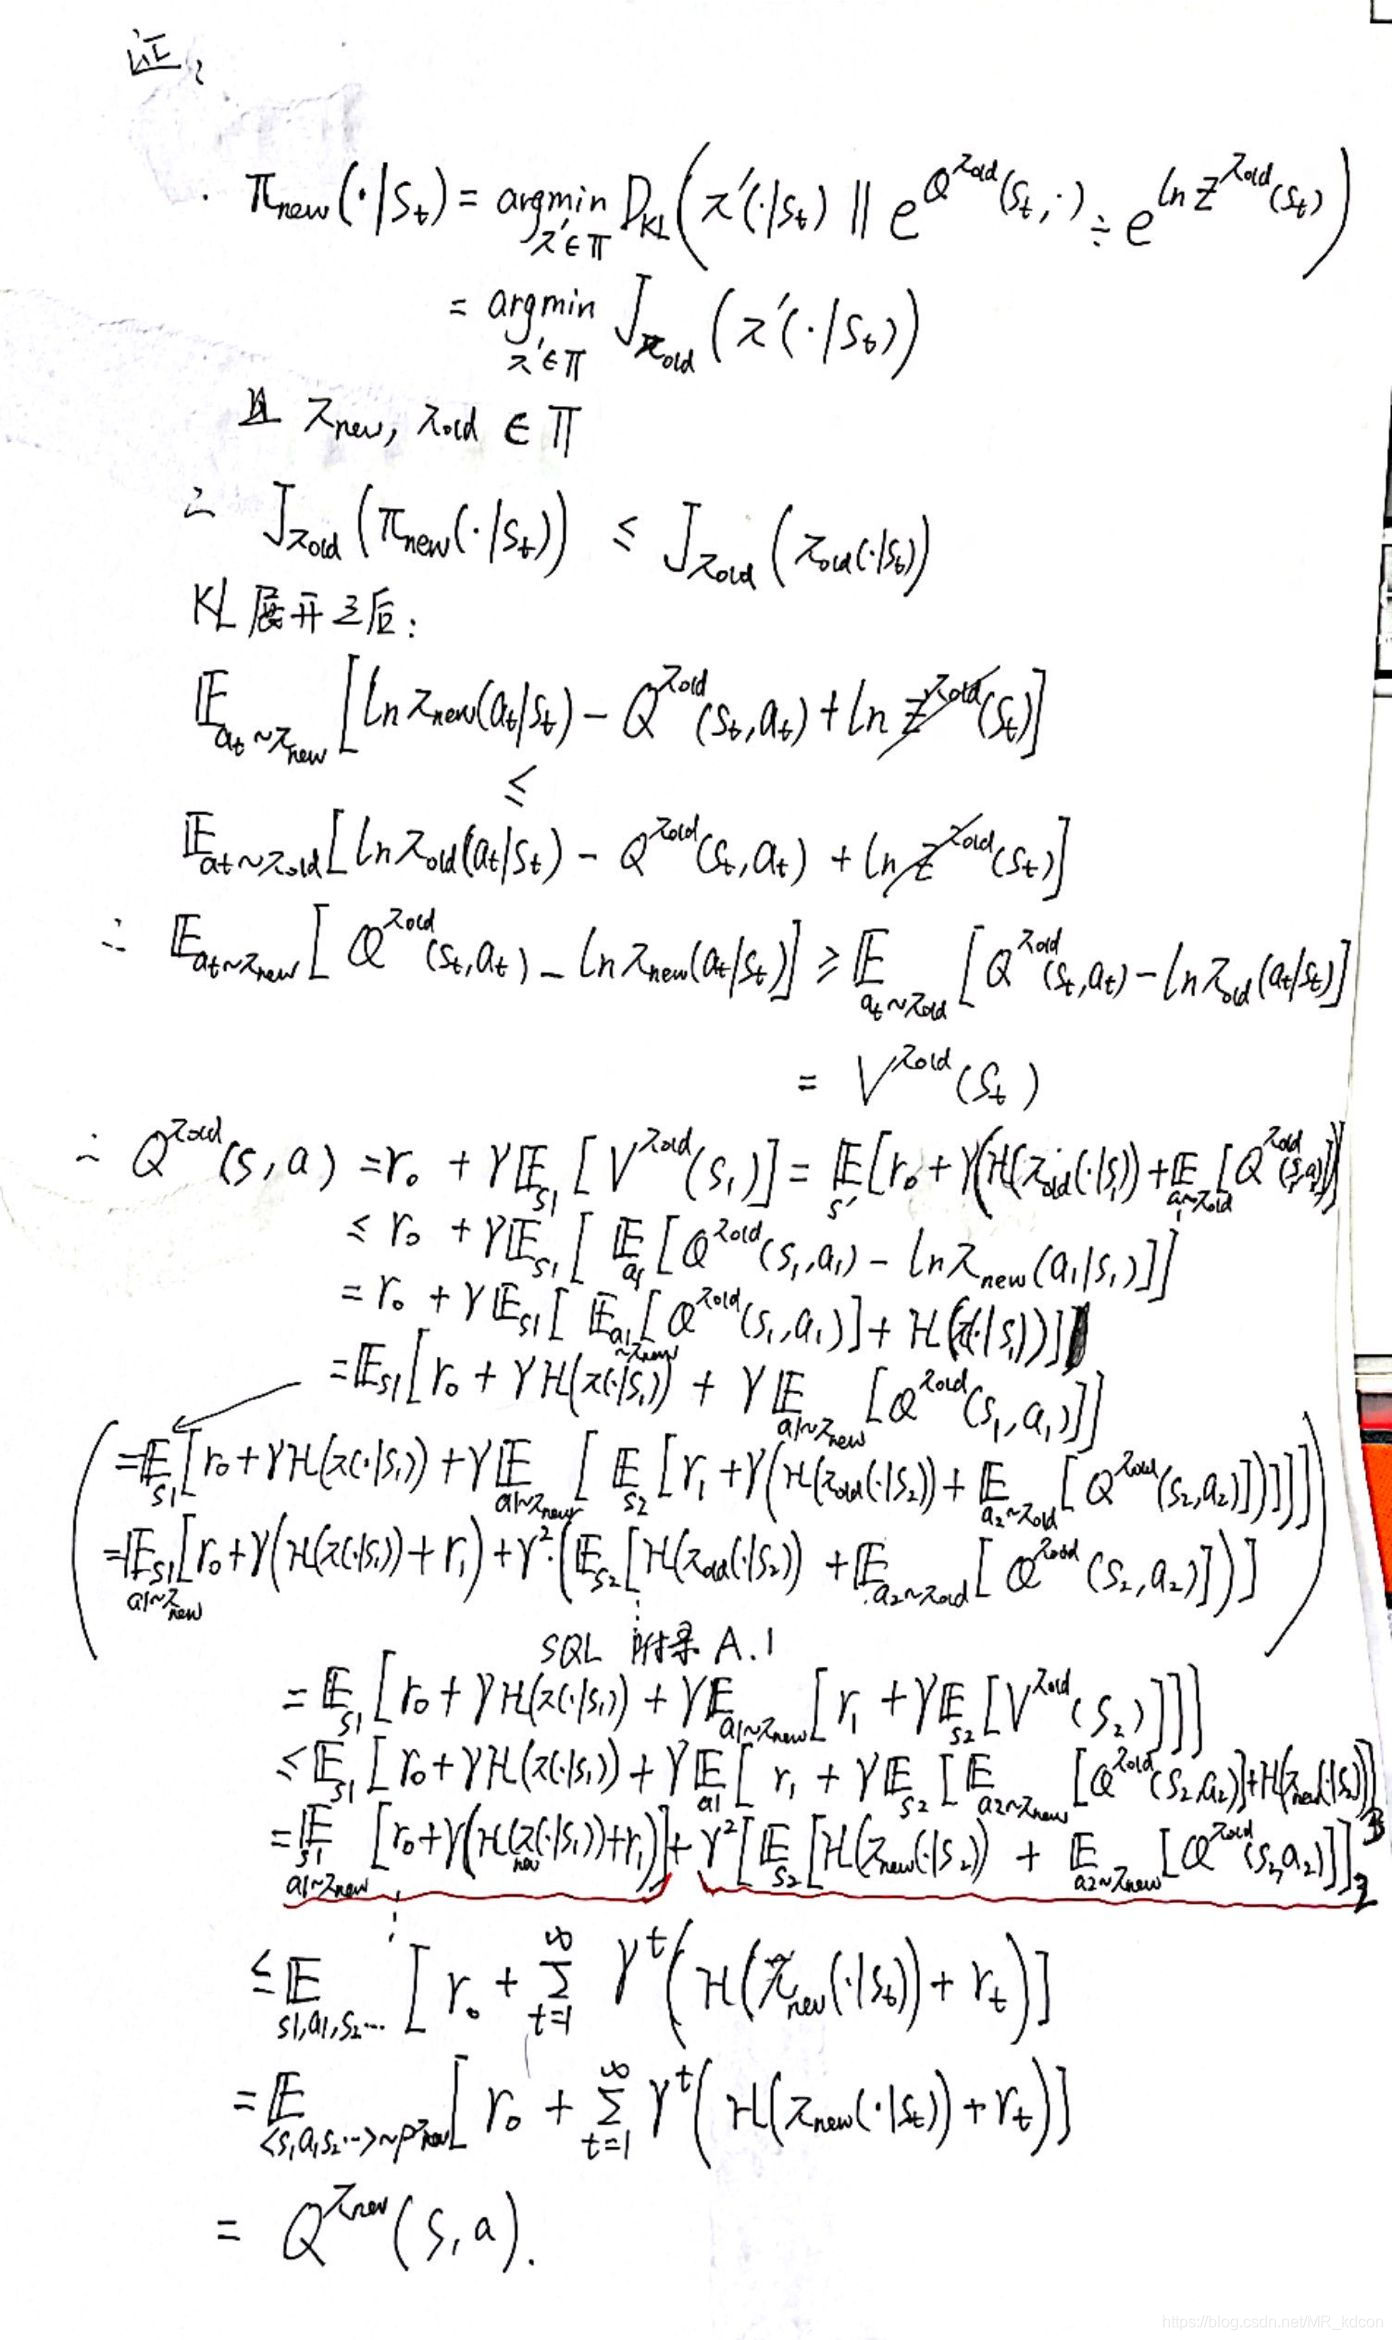 证:
· π_new(·|S_t) = argmin_{π'∈Π} D_KL(π'(·|S_t) || e^{Q^{π_old}(S_t,·)} ÷ e^{ln Z^{π_old}(S_t)})
= argmin_{π'∈Π} J_{π_old}(π'(·|S_t))
且 π_new, π_old ∈ Π
∴ J_{π_old}(π_new(·|S_t)) ≤ J_{π_old}(π_old(·|S_t))
KL展开之后:
𝔼_{a_t~π_new}[ln π_new(a_t|S_t) − Q^{π_old}(S_t,a_t) + ln Z^{π_old}(S_t)]
≤
𝔼_{a_t~π_old}[ln π_old(a_t|S_t) − Q^{π_old}(S_t,a_t) + ln Z^{π_old}(S_t)]
∴ 𝔼_{a_t~π_new}[Q^{π_old}(S_t,a_t) − ln π_new(a_t|S_t)] ≥ 𝔼_{a_t~π_old}[Q^{π_old}(S_t,a_t) − ln π_old(a_t|S_t)]
= V^{π_old}(S_t)
∴ Q^{π_old}(s,a) = r_0 + γ𝔼_{s1}[V^{π_old}(s_1)] = 𝔼_{s'}[r_0 + γ(H(π_old(·|s_1)) + 𝔼_{a_1~π_old}[Q^{π_old}(s_1,a_1)])]
≤ r_0 + γ𝔼_{s1}[𝔼_{a1}[Q^{π_old}(s_1,a_1) − ln π_new(a_1|s_1)]]
= r_0 + γ𝔼_{s1}[𝔼_{a1~π_new}[Q^{π_old}(s_1,a_1)] + H(π(·|s_1))]
= 𝔼_{s1}[r_0 + γH(π(·|s_1)) + γ𝔼_{a1~π_new}[Q^{π_old}(s_1,a_1)]]
(= 𝔼_{s1}[r_0 + γH(π(·|s_1)) + γ𝔼_{a1~π_new}[𝔼_{s2}[r_1 + γ(H(π_old(·|s_2)) + 𝔼_{a_2~π_old}[Q^{π_old}(s_2,a_2)])]]]
= 𝔼_{s1,a1~π_new}[r_0 + γ(H(π(·|s_1)) + r_1) + γ²·(𝔼_{s2}[H(π_old(·|s_2)) + 𝔼_{a_2~π_old}[Q^{π_old}(s_2,a_2)])])
SQL 附录 A.1
= 𝔼_{s1}[r_0 + γH(π(·|s_1)) + γ𝔼_{a1~π_new}[r_1 + γ𝔼_{s2}[V^{π_old}(s_2)]]]
≤ 𝔼_{s1}[r_0 + γH(π(·|s_1)) + γ𝔼_{a1}[r_1 + γ𝔼_{s2}[𝔼_{a2~π_new}[Q^{π_old}(s_2,a_2)] + H(π_new(·|s_2))]]]
= 𝔼_{s1,a1~π_new}[r_0 + γ(H(π_new(·|s_1)) + r_1)] + γ²[𝔼_{s2}[H(π_new(·|s_2)) + 𝔼_{a2~π_new}[Q^{π_old}(s_2,a_2)]]]
≤ 𝔼_{s1,a1,s2...}[r_0 + Σ_{t=1}^{∞} γ^t(H(π_new(·|s_t)) + r_t)]
= 𝔼_{<s_1a_1s_2...>~ρ^{π_new}}[r_0 + Σ_{t=1}^{∞} γ^t(H(π_new(·|s_t)) + r_t)]
= Q^{π_new}(s,a).
https://blog.csdn.net/MR_kdcon